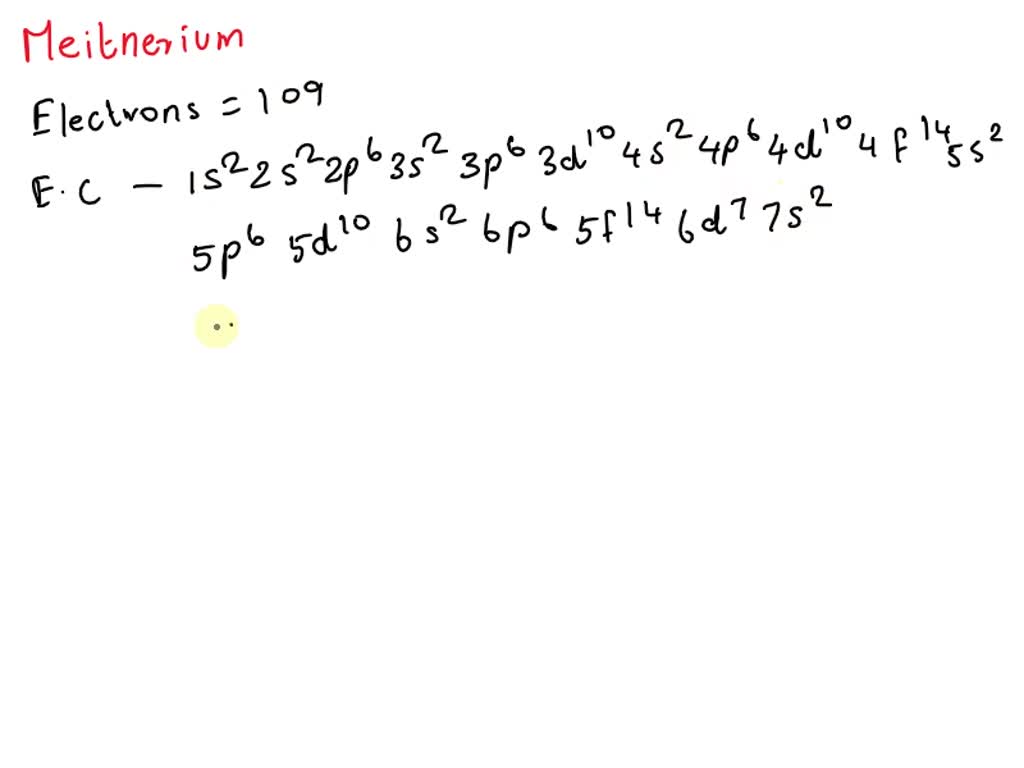 Meitnerium
Electrons = 109
E.C – 1s² 2s² 2p⁶ 3s² 3p⁶ 3d¹⁰ 4s² 4p⁶ 4d¹⁰ 4f¹⁴ 5s²
5p⁶ 5d¹⁰ 6s² 6p⁶ 5f¹⁴ 6d⁷ 7s²